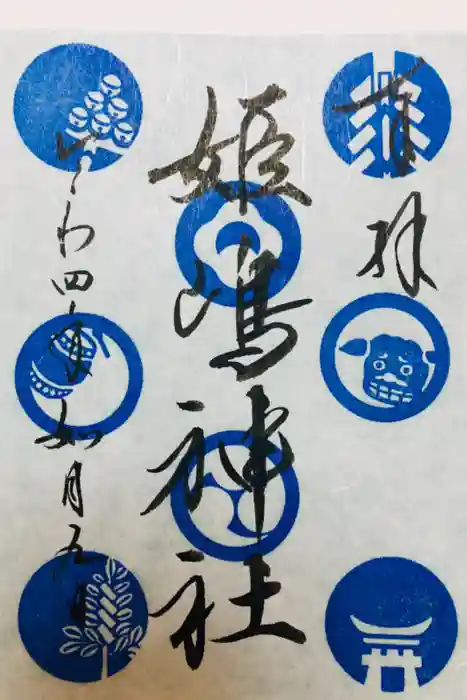 奉拝
姫嶋神社
令わ四年如月五日